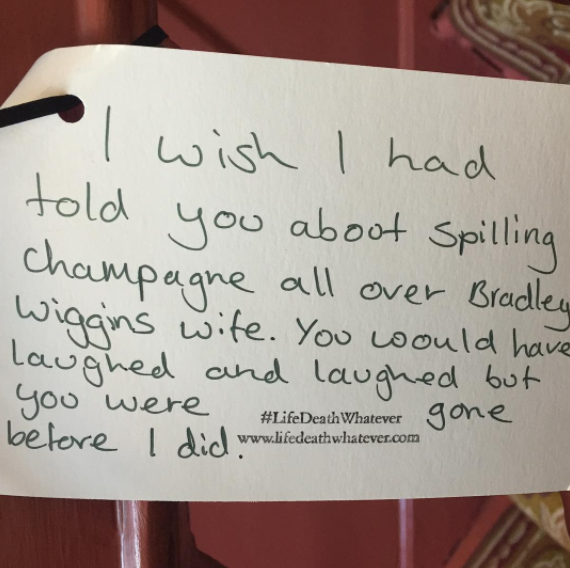 I wish I had
told you about spilling
champagne all over Bradley
Wiggins wife. You woould have
laughed and laughed but
you were gone
#LifeDeathWhatever
before I did.
www.lifedeathwhatever.com